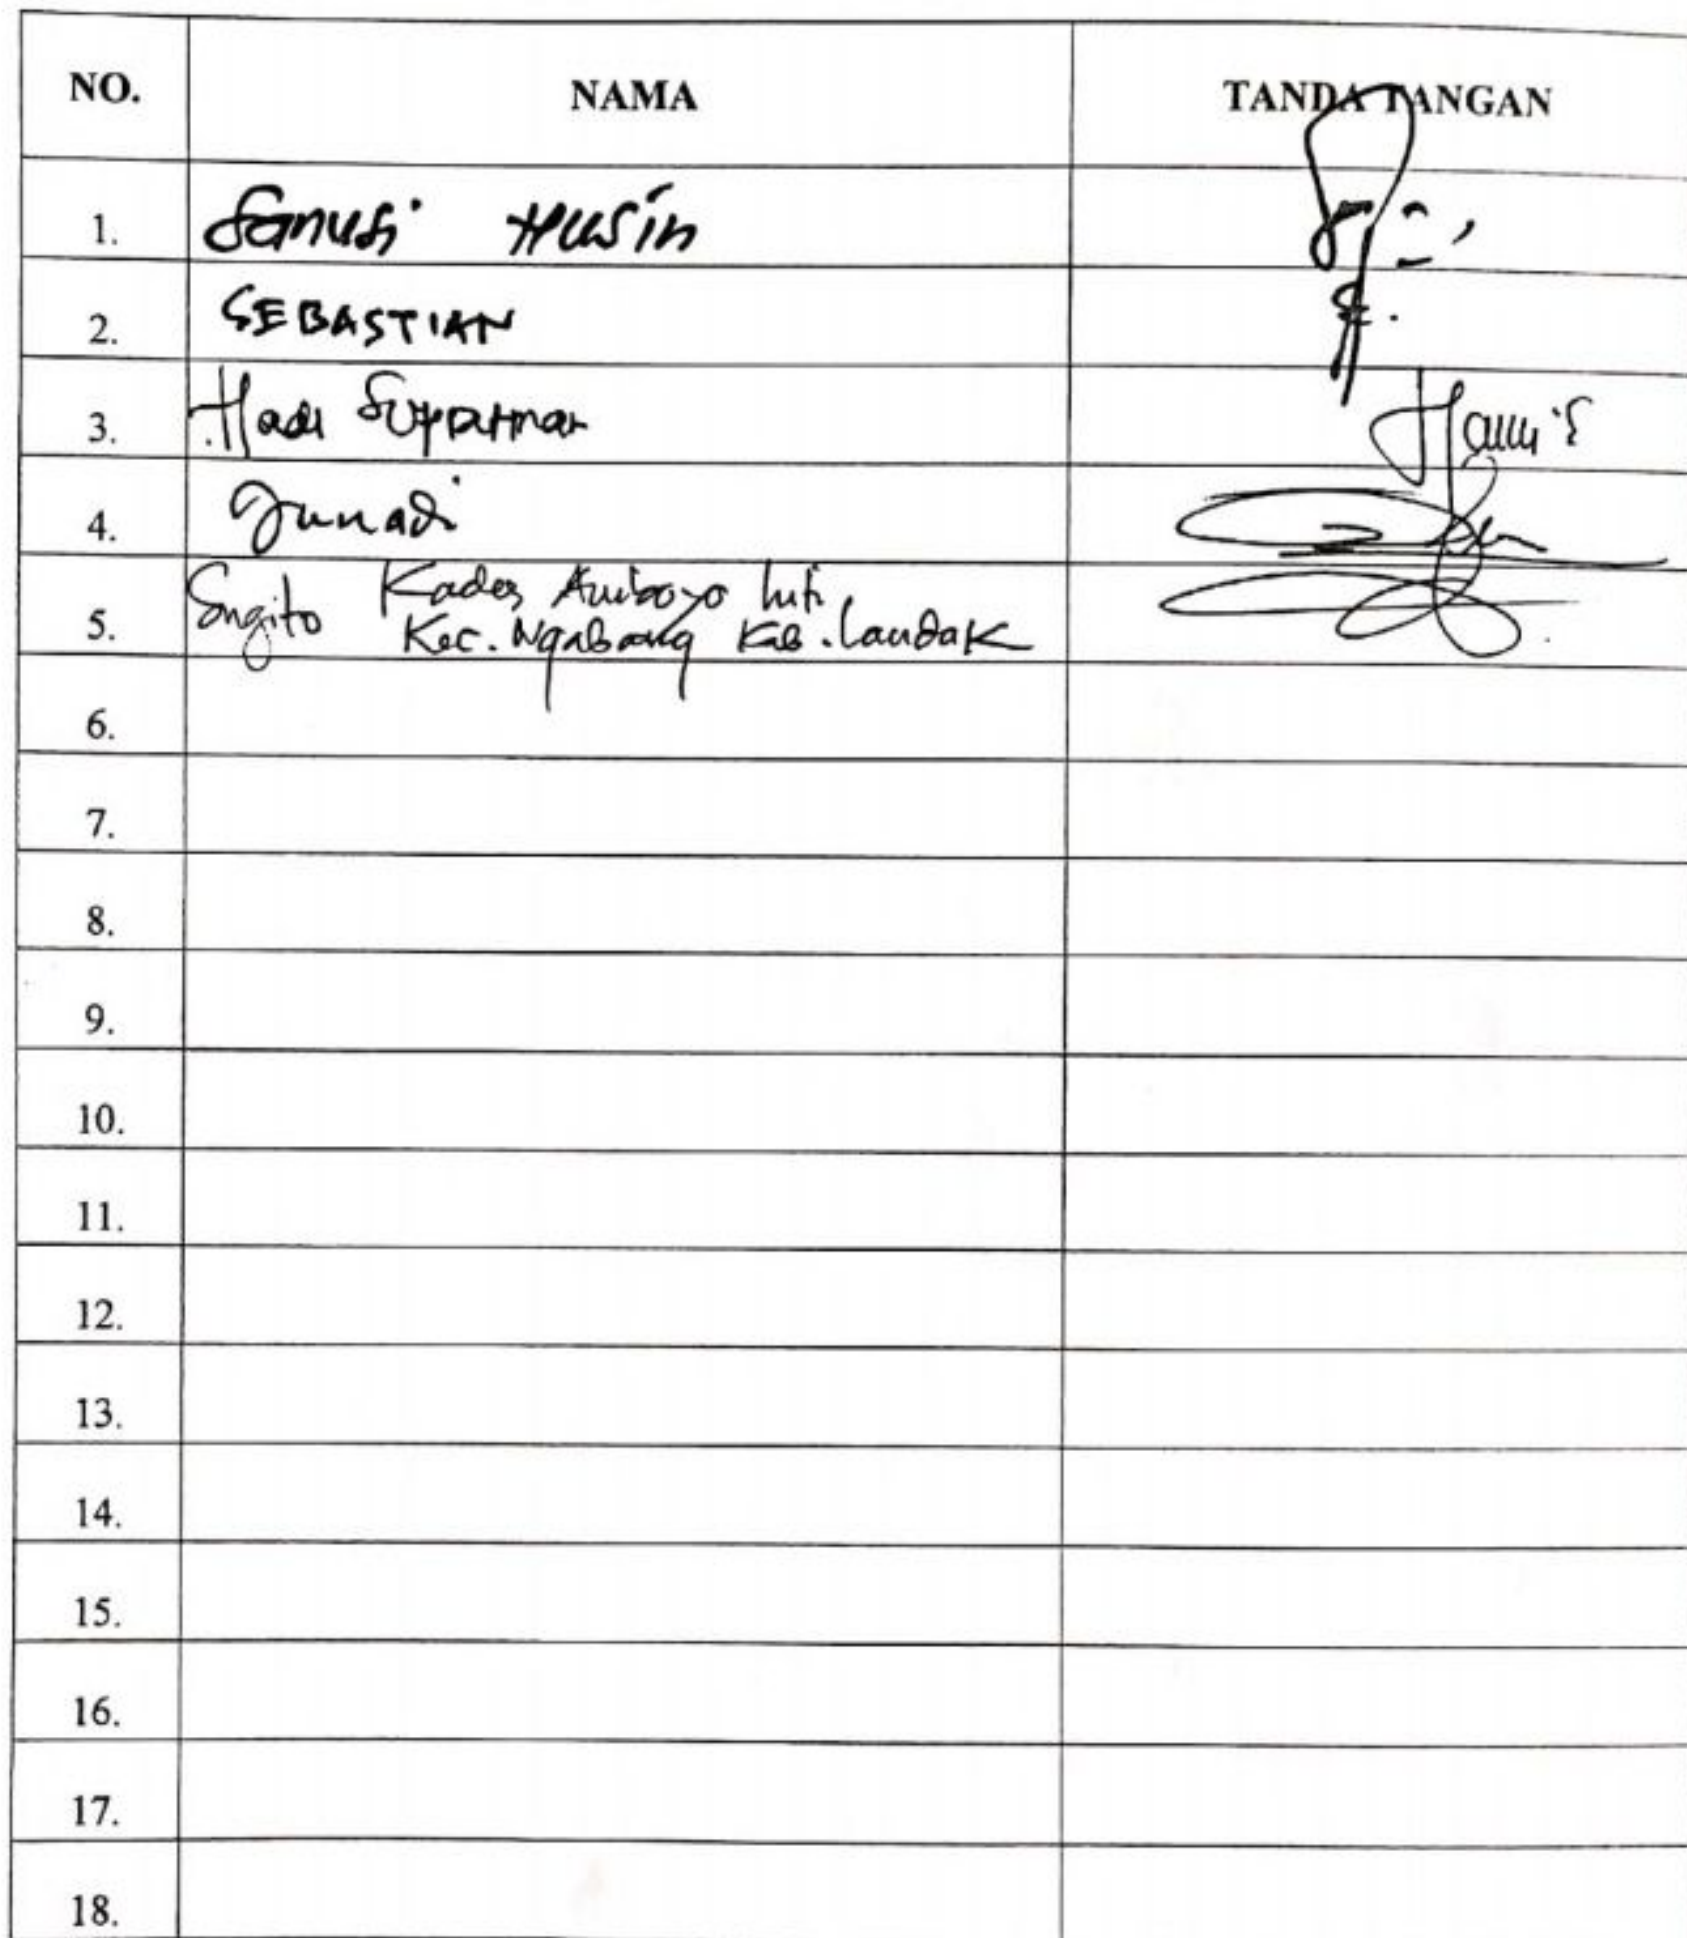 NO. NAMA TANDA TANGAN
1. Sanusi Husin
2. SEBASTIAN
3. Hadi Suparman
4. Junadi
5. Sugito Kades Amboyo Inti
Kec. Ngabang Kab. Landak
6.
7.
8.
9.
10.
11.
12.
13.
14.
15.
16.
17.
18.